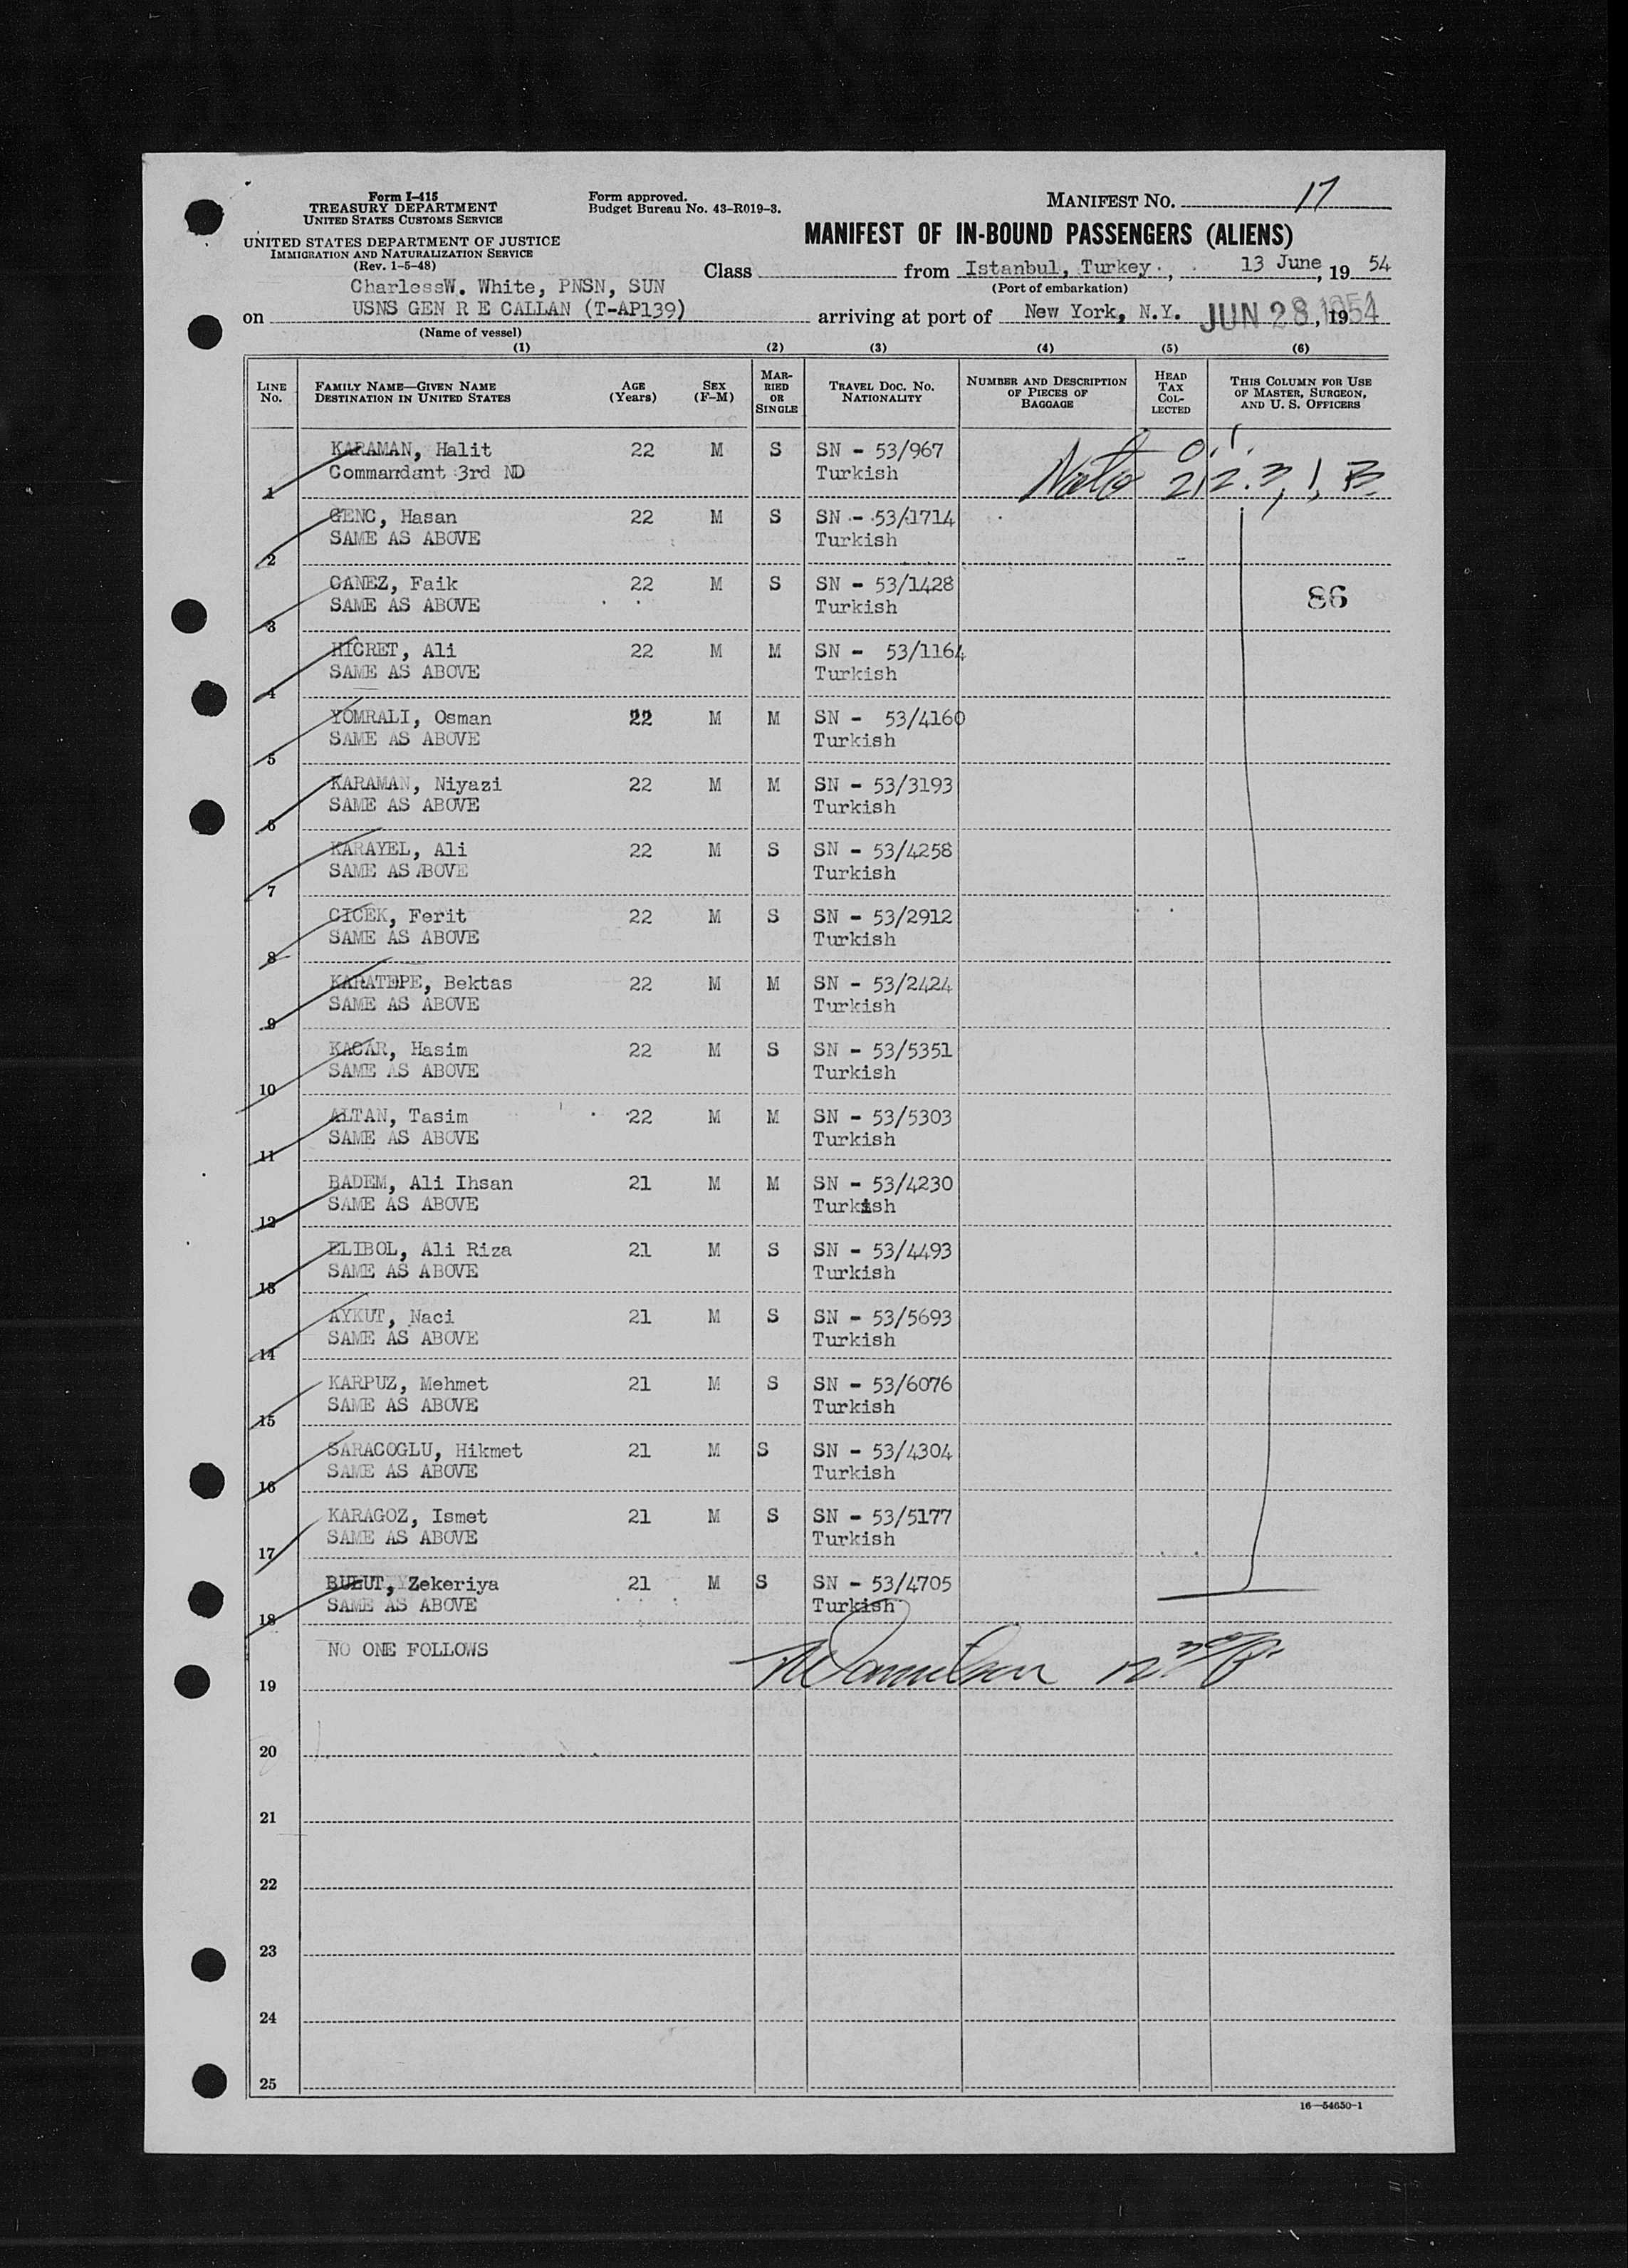 Form I-415
TREASURY DEPARTMENT
UNITED STATES CUSTOMS SERVICE
UNITED STATES DEPARTMENT OF JUSTICE
IMMIGRATION AND NATURALIZATION SERVICE
(Rev. 1-5-48)
Form approved.
Budget Bureau No. 43-R019-3.
MANIFEST NO. 17
MANIFEST OF IN-BOUND PASSENGERS (ALIENS)
Class from Istanbul, Turkey., 13 June, 19 54
(Port of embarkation)
CharlessW. White, PNSN, SUN
on USNS GEN R E CALLAN (T-AP139) arriving at port of New York, N.Y. JUN 28 1954, 19 54
(Name of vessel)
(1) (2) (3) (4) (5) (6)
LINE No. FAMILY NAME—GIVEN NAME DESTINATION IN UNITED STATES AGE (Years) SEX (F-M) MARRIED OR SINGLE TRAVEL DOC. NO. NATIONALITY NUMBER AND DESCRIPTION OF PIECES OF BAGGAGE HEAD TAX COLLECTED THIS COLUMN FOR USE OF MASTER, SURGEON, AND U. S. OFFICERS
KARAMAN, Halit 22 M S SN - 53/967
1 Commandant 3rd ND Turkish Nato
GENC, Hasan 22 M S SN - 53/1714
2 SAME AS ABOVE Turkish
CANEZ, Faik 22 M S SN - 53/1428 86
3 SAME AS ABOVE Turkish
HICRET, Ali 22 M M SN - 53/1164
4 SAME AS ABOVE Turkish
YOMRALI, Osman 22 M M SN - 53/4160
5 SAME AS ABOVE Turkish
KARAMAN, Niyazi 22 M M SN - 53/3193
6 SAME AS ABOVE Turkish
KARAYEL, Ali 22 M S SN - 53/4258
7 SAME AS ABOVE Turkish
CICEK, Ferit 22 M S SN - 53/2912
8 SAME AS ABOVE Turkish
KARATEPE, Bektas 22 M M SN - 53/2424
9 SAME AS ABOVE Turkish
KACAR, Hasim 22 M S SN - 53/5351
10 SAME AS ABOVE Turkish
ALTAN, Tasim 22 M M SN - 53/5303
11 SAME AS ABOVE Turkish
BADEM, Ali Ihsan 21 M M SN - 53/4230
12 SAME AS ABOVE Turkish
ELIBOL, Ali Riza 21 M S SN - 53/4493
13 SAME AS ABOVE Turkish
AYKUT, Naci 21 M S SN - 53/5693
14 SAME AS ABOVE Turkish
KARPUZ, Mehmet 21 M S SN - 53/6076
15 SAME AS ABOVE Turkish
SARACOGLU, Hikmet 21 M S SN - 53/4304
16 SAME AS ABOVE Turkish
KARAGOZ, Ismet 21 M S SN - 53/5177
17 SAME AS ABOVE Turkish
BULUT, Zekeriya 21 M S SN - 53/4705
18 SAME AS ABOVE Turkish
NO ONE FOLLOWS
19
20
21
22
23
24
25
16—54650-1